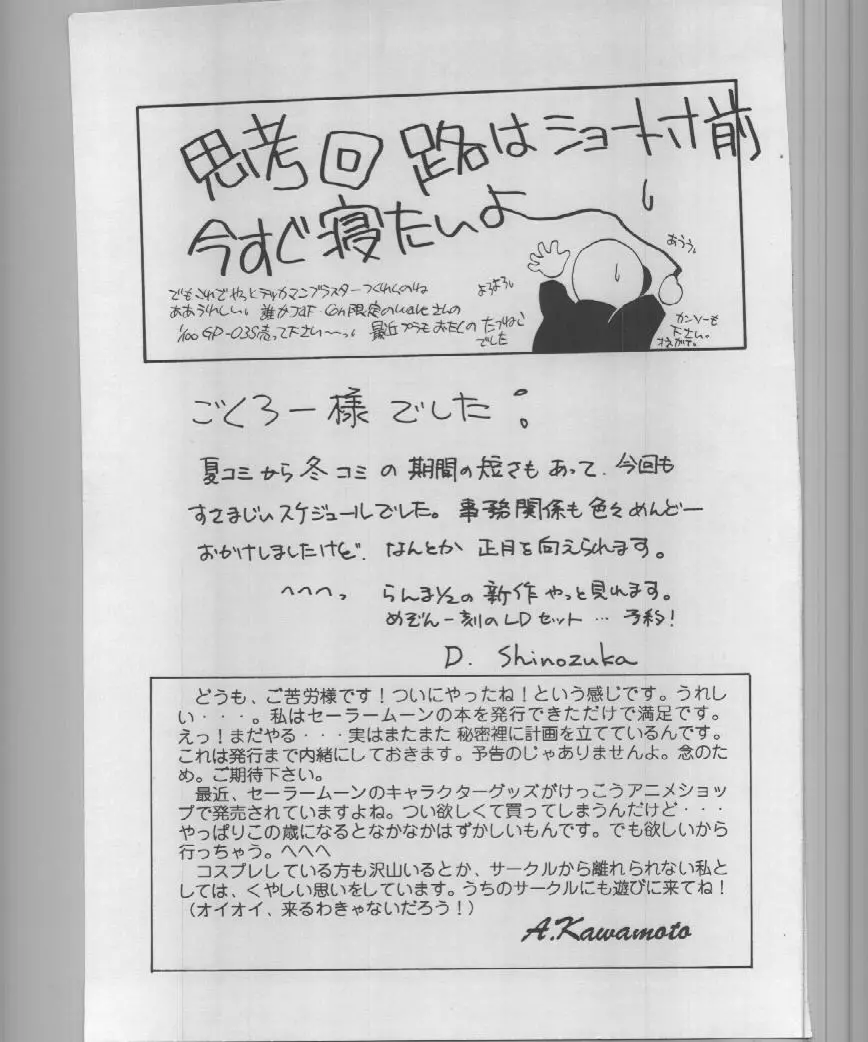 思考回路はショート寸前
今すぐ寝たいよ
おうう。
よろよろ。
でもこれでやっとテッカマンブラスターつくれるのね
ああうれしい。誰かJAF・Con限定のwaveさんの
1/100 GP-03S売って下さい〜〜っ。最近プラモおたくの たつねこ
でした
カンソーも
下さい。
ごくろー様でした。
夏コミから冬コミの期間の短さもあって、今回も
すさまじいスケジュールでした。事務関係も色々めんどー
おかけしましたけど、なんとか正月を向えられます。
へへへっ らんま1/2の新作やっと見れます。
めぞん一刻のLDセット…予約!
D. Shinozuka
どうも、ご苦労様です!ついにやったね!という感じです。うれし
い・・・。私はセーラームーンの本を発行できただけで満足です。
えっ!まだやる・・・実はまたまた 秘密裡に計画を立てているんです。
これは発行まで内緒にしておきます。予告のじゃありませんよ。念のた
め。ご期待下さい。
最近、セーラームーンのキャラクターグッズがけっこうアニメショッ
プで発売されていますよね。つい欲しくて買ってしまうんだけど・・・
やっぱりこの歳になるとなかなかはずかしいもんです。でも欲しいから
行っちゃう。へへへ
コスプレしている方も沢山いるとか、サークルから離れられない私と
しては、くやしい思いをしています。うちのサークルにも遊びに来てね!
(オイオイ、来るわきゃないだろう!)
A.Kawamoto